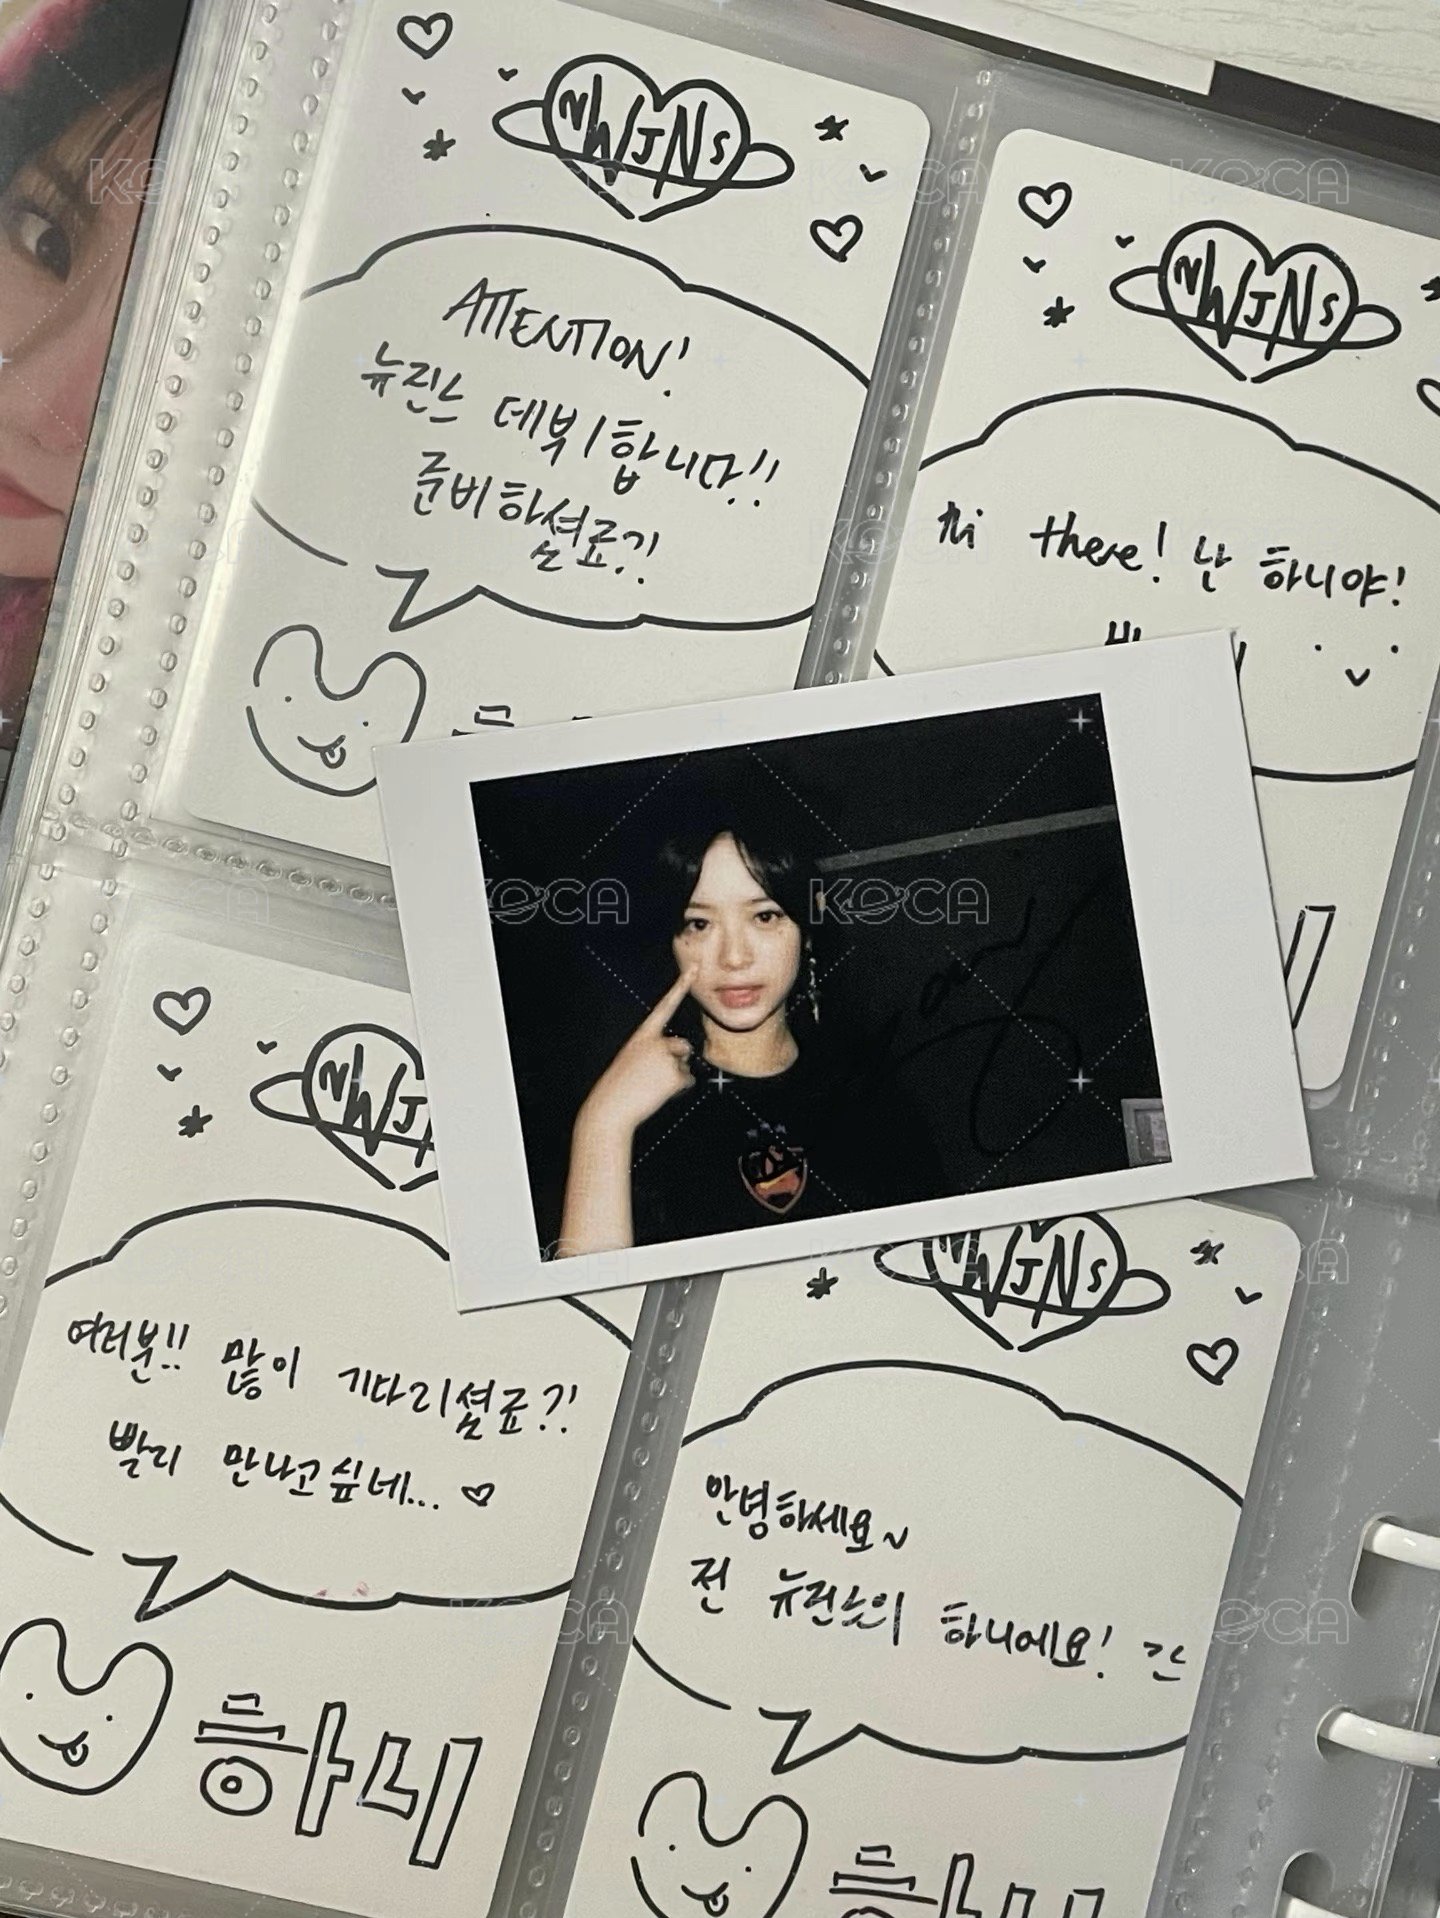 NWJNS
ATTENTION!
뉴진스 데뷔합니다!!
준비하셨죠?!
NWJNS
hi there! 난 하니야!
NWJ
여러분!! 많이 기다리셨죠?!
빨리 만나고싶네... ♡
하니
WJNS
안녕하세요~
전 뉴진스의 하니에요! ㄱㄴ
하니
KOCA